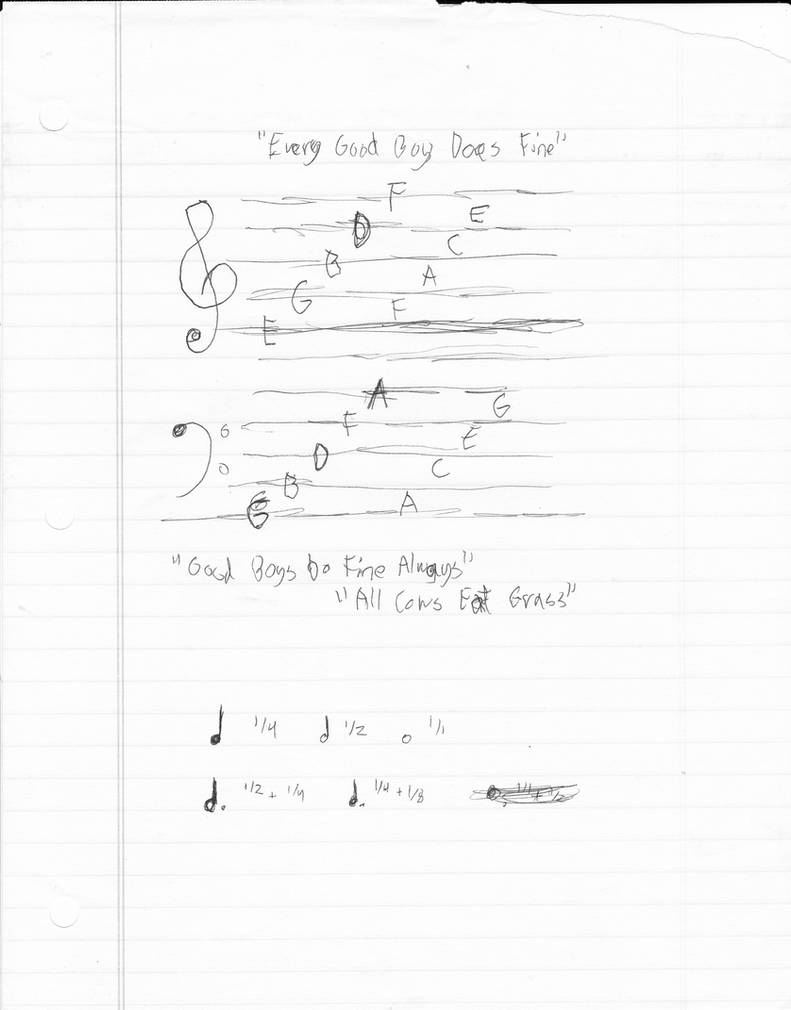 "Every Good Boy Does Fine"
F
E
D
C
B
A
G
F
E
A
G
F
E
D
C
B
A
G
"Good Boys Do Fine Always"
"All Cows Eat Grass"
1/4 1/2 1/1
1/2 + 1/4 1/4 + 1/8 1/1 + 1/2